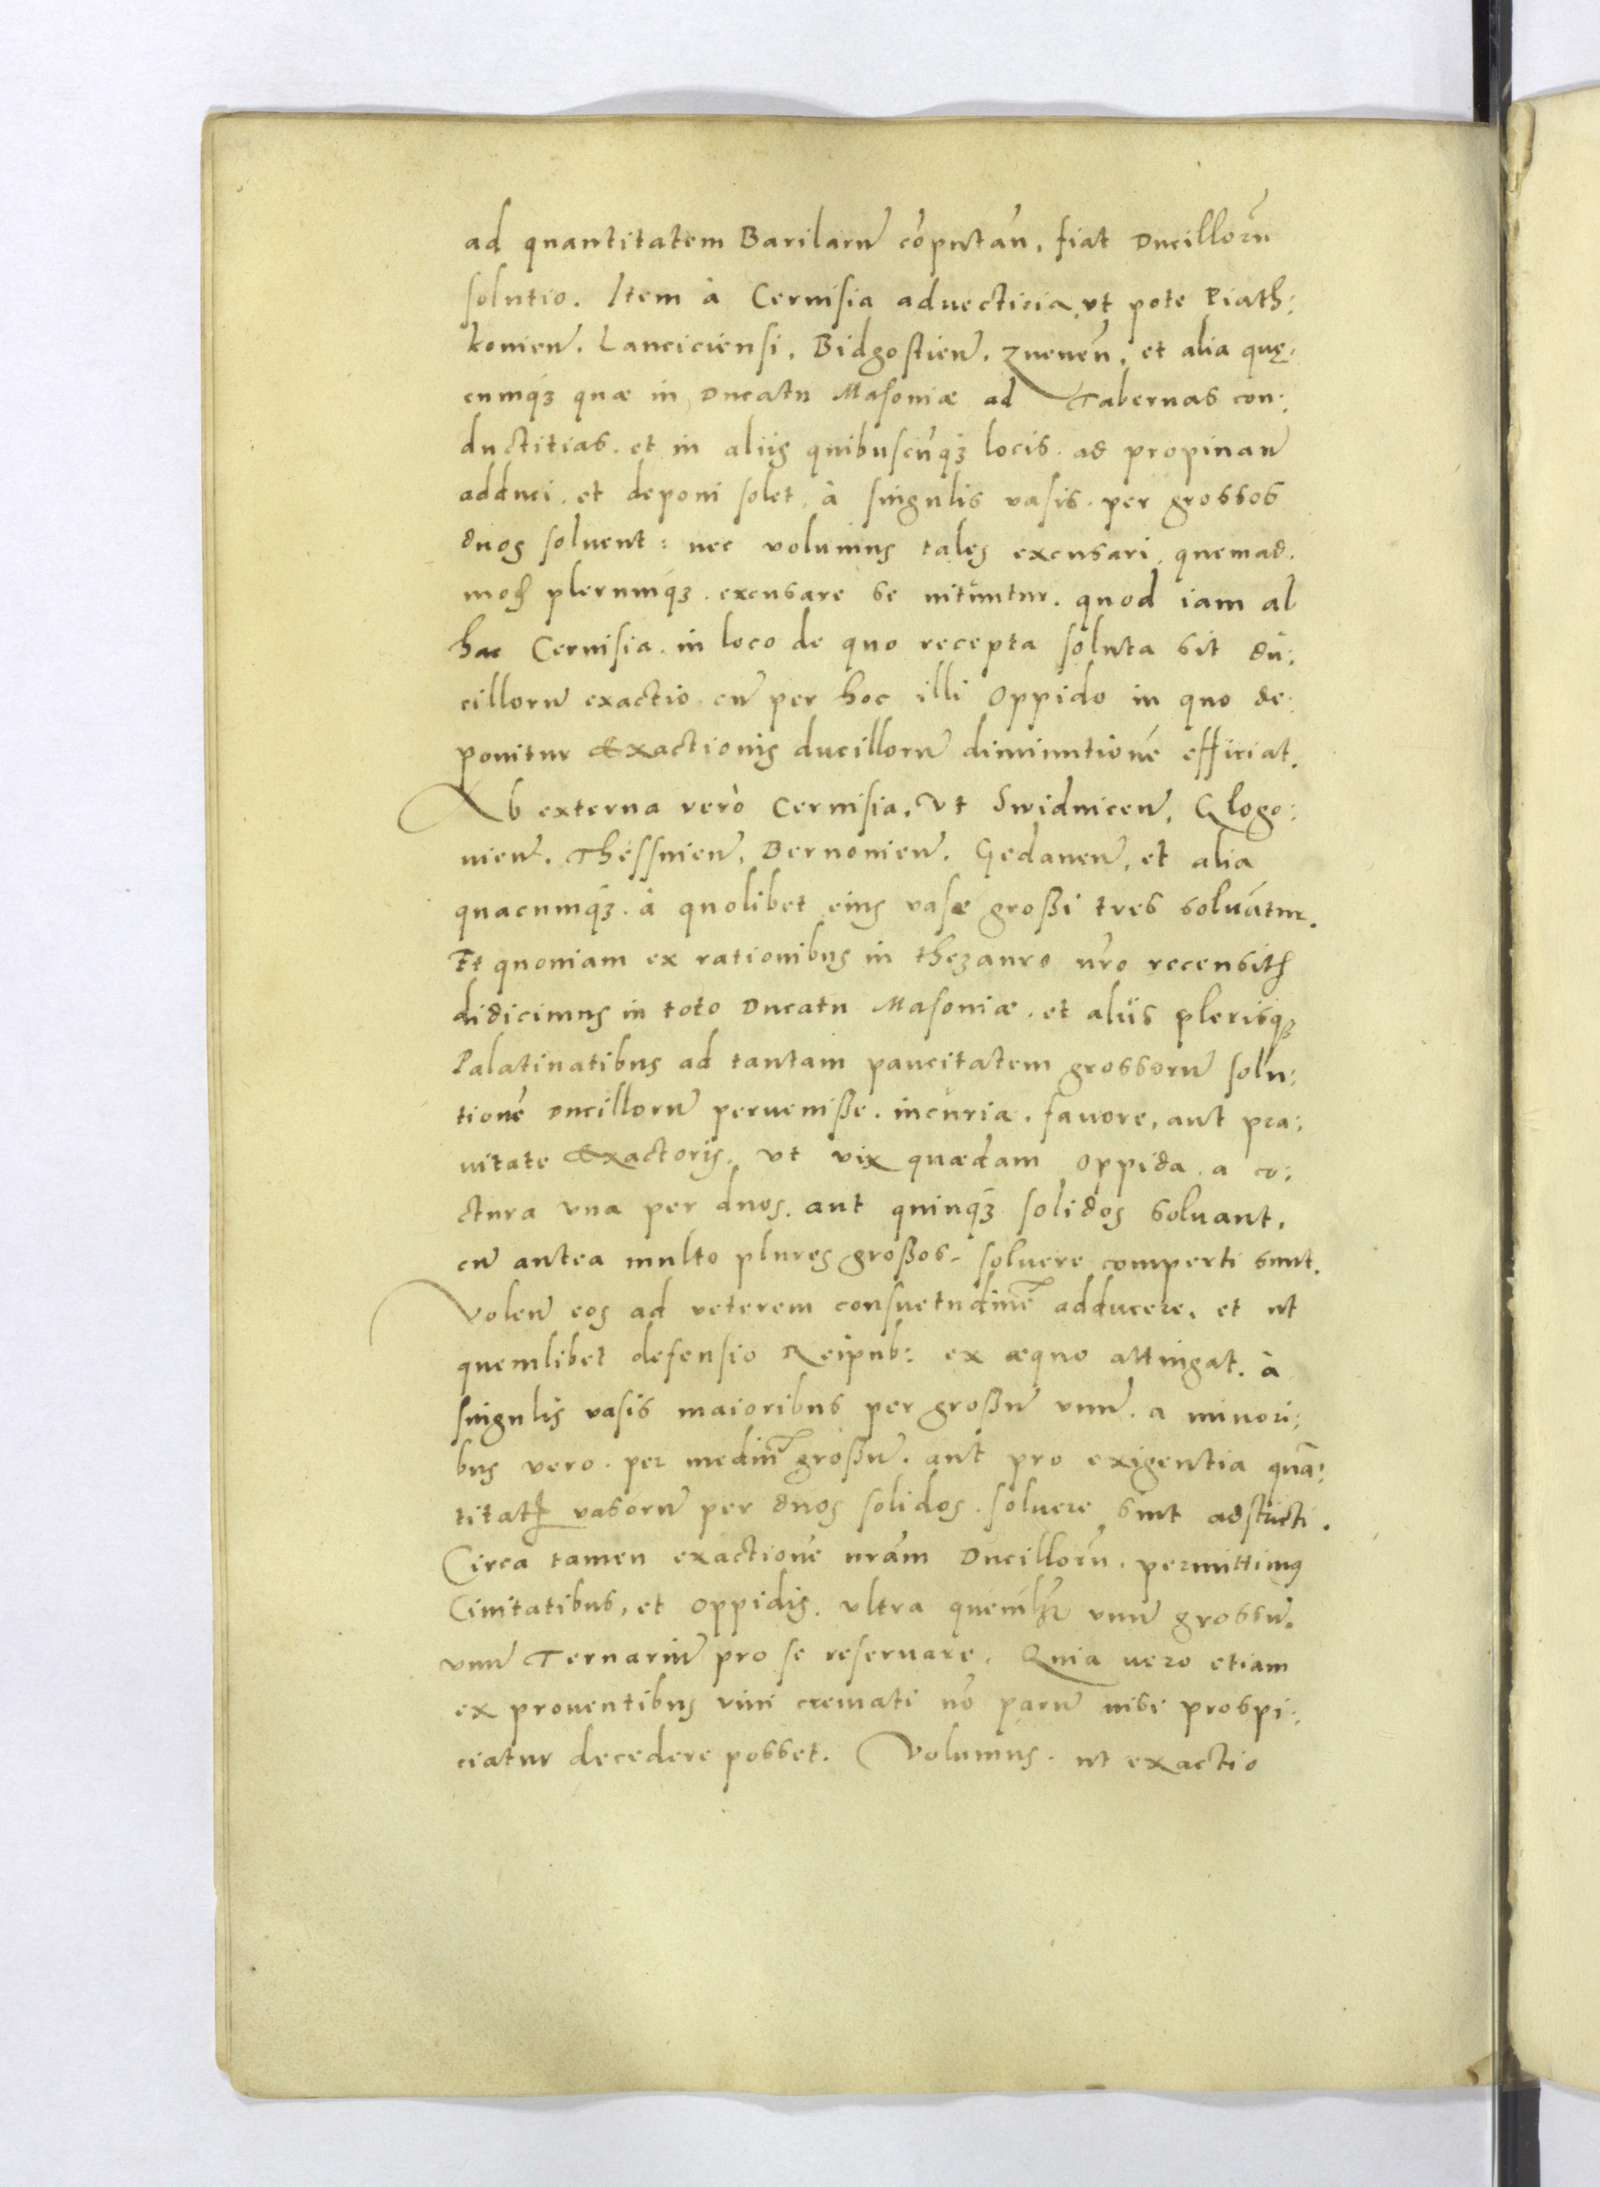 ad quantitatem Barilarū cōputan̄, fiat Ducillorū
solutio. Item à Ceruisia aduecticia, vt pote Piath:
konien̄. Lanciciensi, Bidgostien̄. Zneuen̄, et alia quę:
cumq́ȝ quæ in Ducatu Masouiæ ad Tabernas con:
ductitias. et in aliis quibuscūq́ȝ locis. ad propinan̄
adduci. et deponi solet, à singulis vasis. per grossos
duos soluent: nec volumus tales excusari, quemad.
mod plerumq́ȝ. excusare se nitūntur. quod iam ab
hac Ceruisia. in loco de quo recepta soluta sit du:
cillorū exactio. cū per hoc illi Oppido in quo de:
ponitur Exactionis ducillorū diminutionē efficiat.
Ab externa verò Ceruisia. Vt Swidnicen̄, Glogo:
uien̄. Thessnien̄, Bernouien̄. Gedanen̄, et alia
quacumq́ȝ. à quolibet eius vase großi tres soluātur.
Et quoniam ex rationibus in thezauro nr̄o recensitis
didicimus in toto Ducatu Masouiæ. et aliis plerisqȝ
Palatinatibus ad tantam paucitatem grossorū solu:
tionē Ducillorū peruenisse. incūria. fauore, aut pra:
uitate Exactoris. vt vix quædam Oppida. a co:
ctura vna per duos. aut quinqȝ solidos soluant,
cū antea multo plures großos soluere comperti sunt.
Volen̄ eos ad veterem consuetudinē adducere, et ut
quemlibet defensio Reipub: ex æquo attingat. à
singulis vasis maioribus per großū vnū. a minori:
bus vero. per mediū großū. aut pro exigentia quā:
titatis vasorū per duos solidos. soluere sunt adstricti.
Circa tamen exactionē nr̄am Ducillorū. permittimus
Ciuitatibus, et Oppidis. vltra quemlibet vnū grossū.
vnū Ternariū pro se reseruare. Quia uero etiam
ex prouentibus vini cremati nō parū nisi prospi:
ciatur decedere posset. Volumus. ut exactio